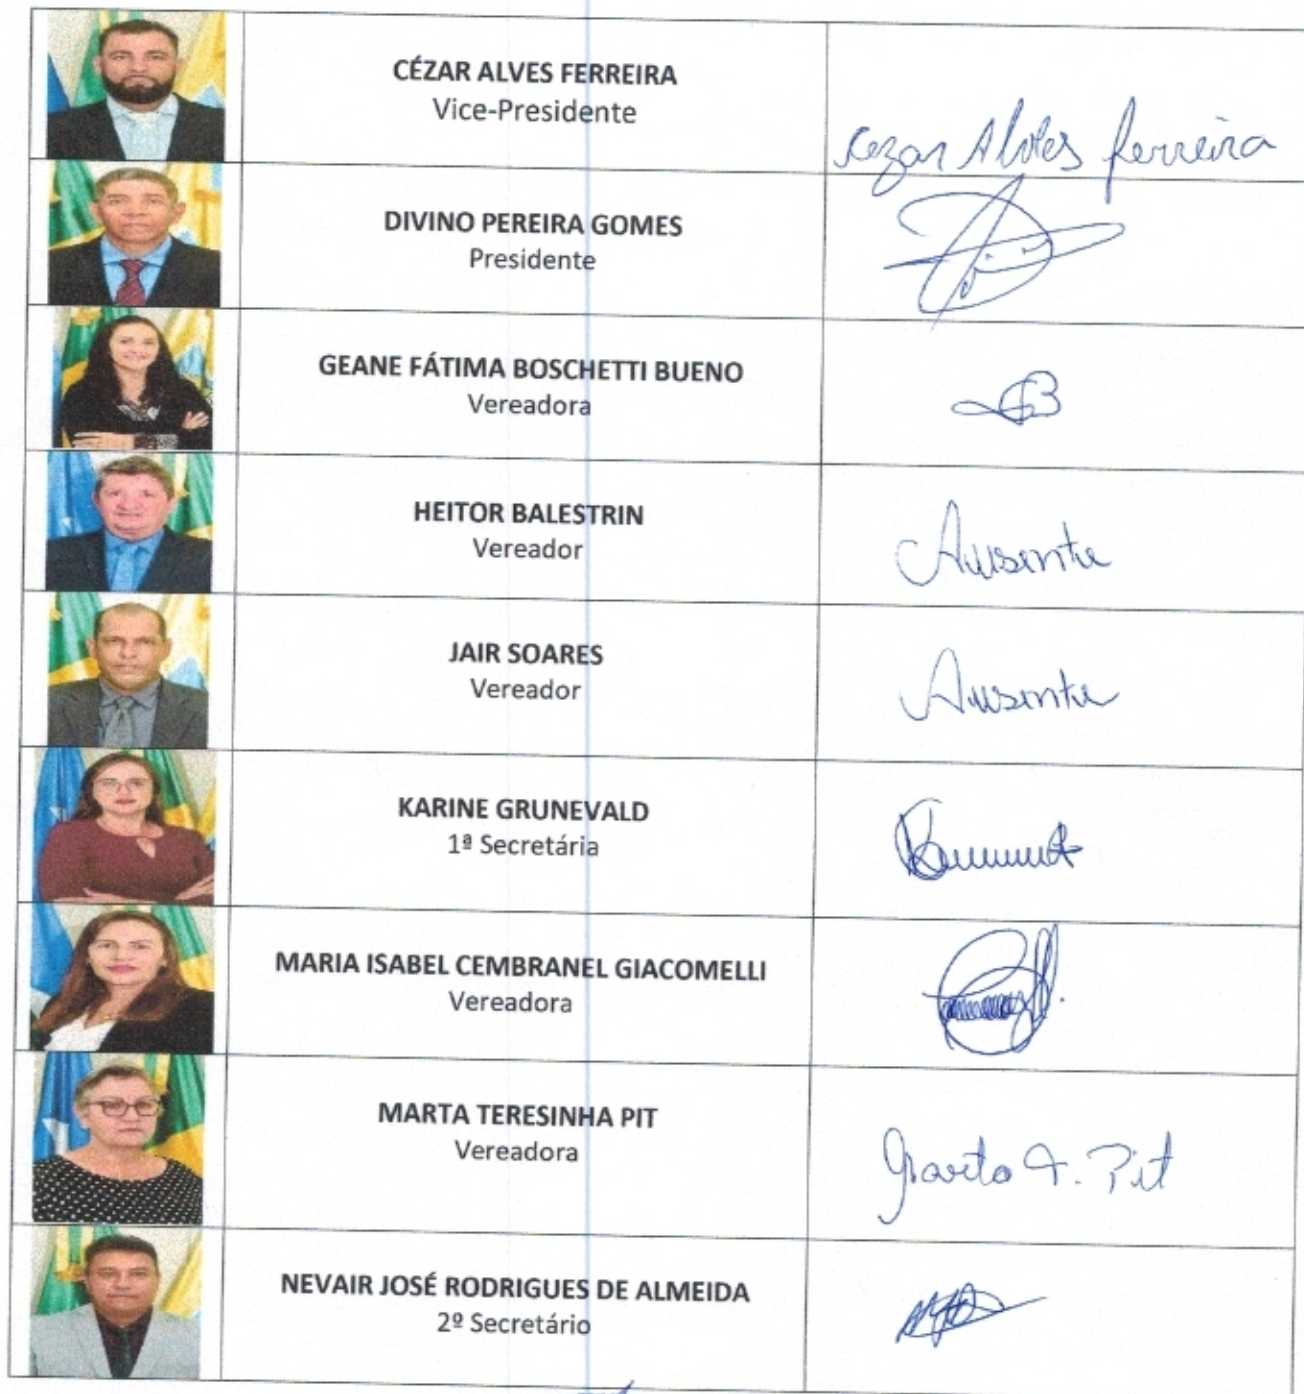 CÉZAR ALVES FERREIRA
Vice-Presidente
Cezar Alves Ferreira
DIVINO PEREIRA GOMES
Presidente
GEANE FÁTIMA BOSCHETTI BUENO
Vereadora
HEITOR BALESTRIN
Vereador
Ausente
JAIR SOARES
Vereador
Ausente
KARINE GRUNEVALD
1ª Secretária
MARIA ISABEL CEMBRANEL GIACOMELLI
Vereadora
MARTA TERESINHA PIT
Vereadora
Marta T. Pit
NEVAIR JOSÉ RODRIGUES DE ALMEIDA
2º Secretário